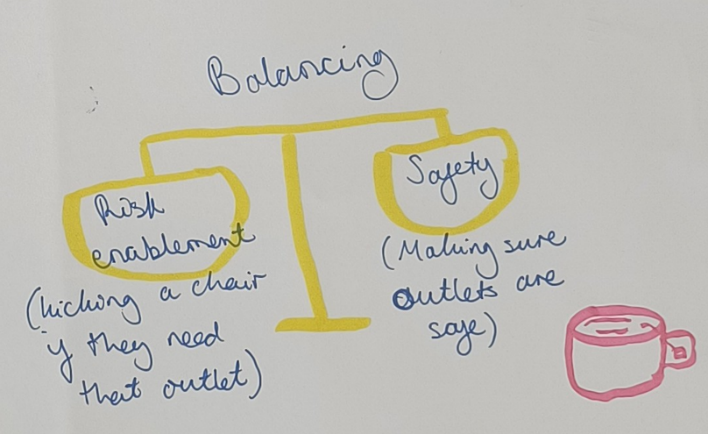 Balancing
Risk
enablement
(kicking a chair
if they need
that outlet)
Safety
(Making sure
outlets are
safe)